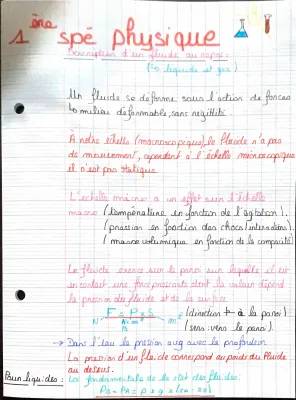 1 ère spé physique
Description d'un fluide au repos :
(↳ liquide et gaz)
Un fluide se déforme sous l'action de forces
↳ milieu déformable, sans rigidité
À notre échelle (macroscopique), le fluide n'a pas
de mouvement, cependant à l'échelle microscopique
il n'est pas statique.
L'échelle micro a un effet sur l'échelle
macro (température en fonction de l'agitation).
(pression en fonction des chocs/interactions)
(masse volumique en fonction de la compacité)
Le fluide exerce sur la paroi sur laquelle il est
en contact une force pressante dont la valeur dépend
la pression du fluide et de la surface
F = P × S (direction ⊥ à la paroi)
N m² (sens : vers la paroi).
→ Dans l'eau la pression aug avec la profondeur
La pression d'un fluide correspond au poids du fluide
au dessus.
Pour liquides : Loi fondamentale de la stat des fluides.